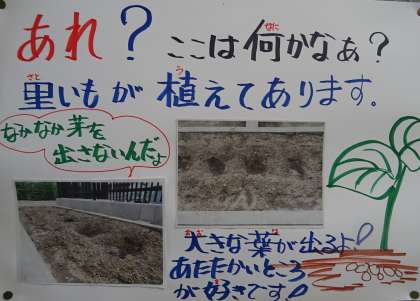 あれ？ここは何かなぁ？
里いもが植えてあります。
なかなか芽を
出さないんだよ
大きな葉が出るよ
あたたかいところ
が好きです